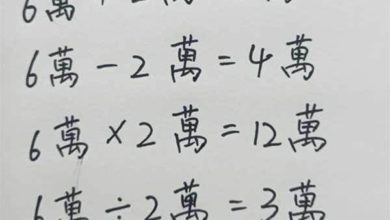 6萬 + 2萬 =
6萬 - 2萬 = 4萬
6萬 × 2萬 = 12萬
6萬 ÷ 2萬 = 3萬